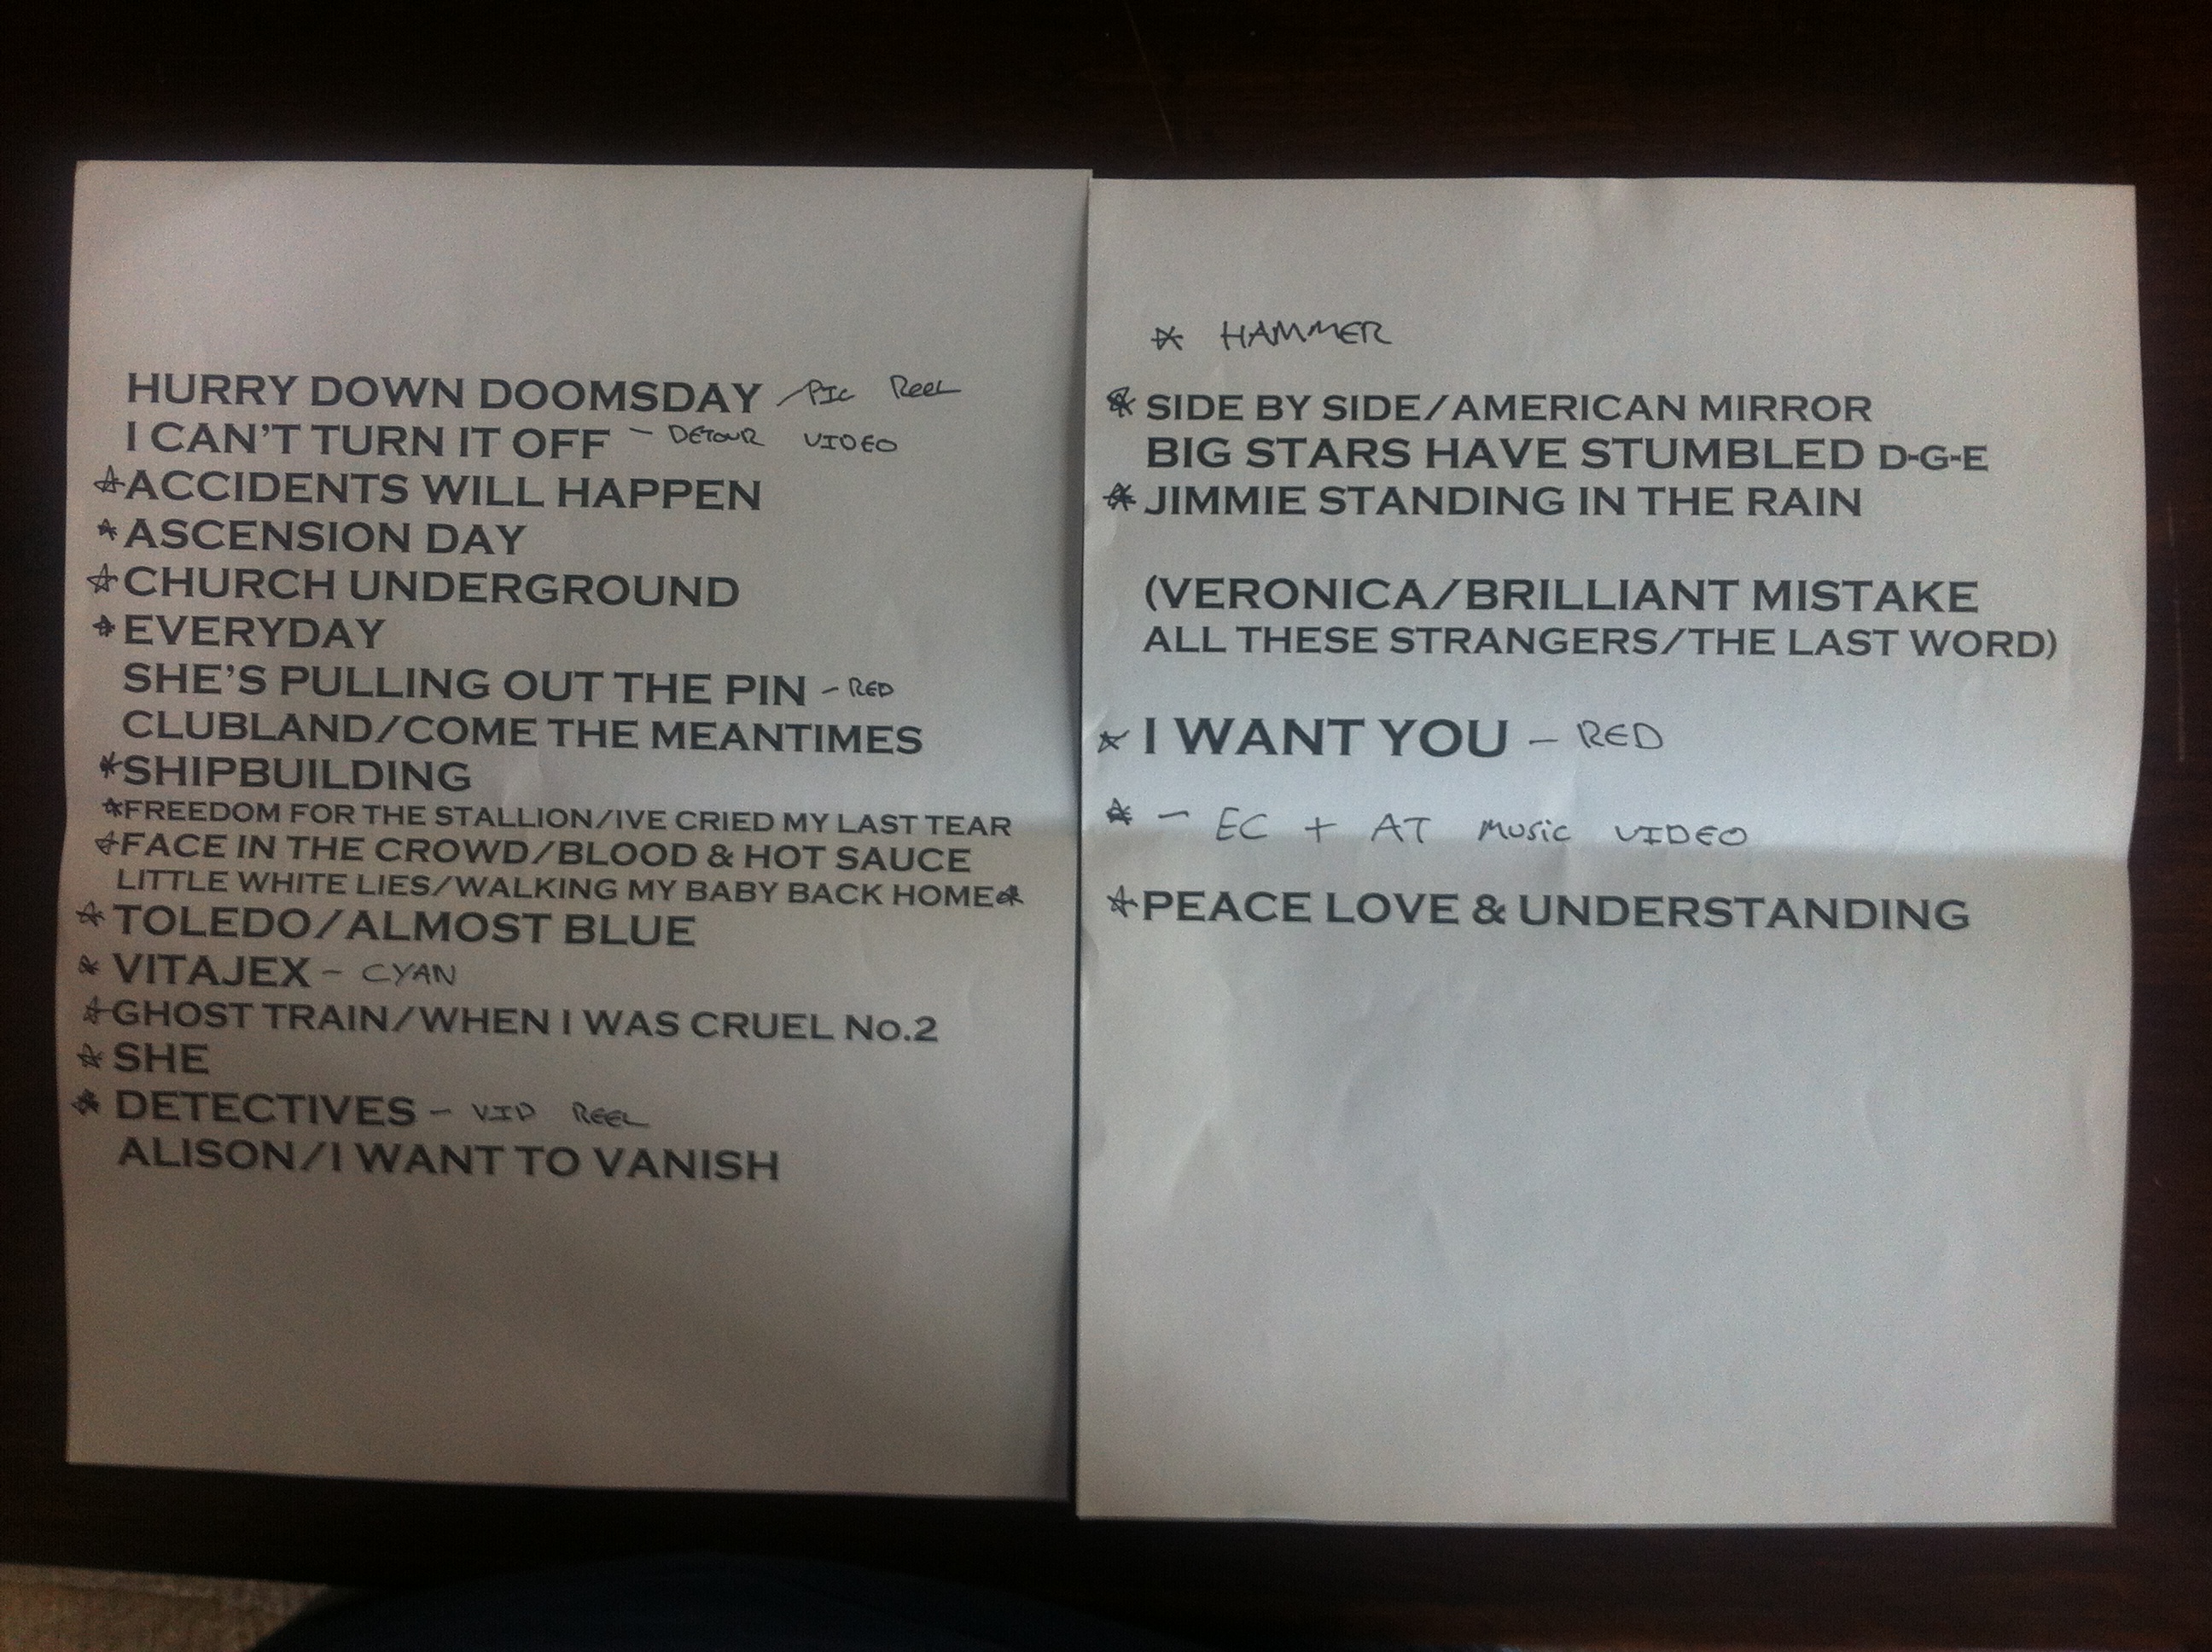 HURRY DOWN DOOMSDAY - PIC REEL
I CAN'T TURN IT OFF - DETOUR VIDEO
☆ACCIDENTS WILL HAPPEN
☆ASCENSION DAY
☆CHURCH UNDERGROUND
☆EVERYDAY
SHE'S PULLING OUT THE PIN - RED
CLUBLAND/COME THE MEANTIMES
☆SHIPBUILDING
☆FREEDOM FOR THE STALLION/IVE CRIED MY LAST TEAR
☆FACE IN THE CROWD/BLOOD & HOT SAUCE
LITTLE WHITE LIES/WALKING MY BABY BACK HOME☆
☆TOLEDO/ALMOST BLUE
☆VITAJEX - CYAN
☆GHOST TRAIN/WHEN I WAS CRUEL No.2
☆SHE
☆DETECTIVES - VID REEL
ALISON/I WANT TO VANISH
☆ HAMMER
☆SIDE BY SIDE/AMERICAN MIRROR
BIG STARS HAVE STUMBLED D-G-E
☆JIMMIE STANDING IN THE RAIN
(VERONICA/BRILLIANT MISTAKE
ALL THESE STRANGERS/THE LAST WORD)
☆I WANT YOU - RED
☆ - EC + AT MUSIC VIDEO
☆PEACE LOVE & UNDERSTANDING